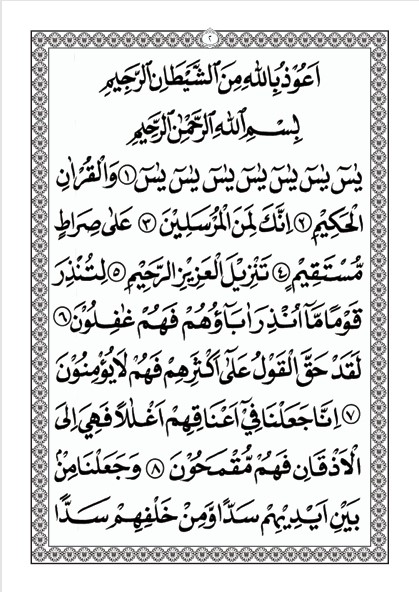 ٢
اَعُوْذُ بِاللهِ مِنَ الشَّيْطَانِ الرَّجِيْمِ
بِسْمِ اللهِ الرَّحْمٰنِ الرَّحِيْمِ
يٰسٓ يٰسٓ يٰسٓ يٰسٓ يٰسٓ يٰسٓ يٰسٓ ﴿١﴾ وَالْقُرْاٰنِ
الْحَكِيْمِ ﴿٢﴾ اِنَّكَ لَمِنَ الْمُرْسَلِيْنَ ﴿٣﴾ عَلٰى صِرَاطٍ
مُّسْتَقِيْمٍ ﴿٤﴾ تَنْزِيْلَ الْعَزِيْزِ الرَّحِيْمِ ﴿٥﴾ لِتُنْذِرَ
قَوْمًا مَّآ اُنْذِرَ اٰبَآؤُهُمْ فَهُمْ غٰفِلُوْنَ ﴿٦﴾
لَقَدْ حَقَّ الْقَوْلُ عَلٰٓى اَكْثَرِهِمْ فَهُمْ لَا يُؤْمِنُوْنَ
﴿٧﴾ اِنَّا جَعَلْنَا فِيْٓ اَعْنَاقِهِمْ اَغْلٰلًا فَهِيَ اِلَى
الْاَذْقَانِ فَهُمْ مُّقْمَحُوْنَ ﴿٨﴾ وَجَعَلْنَا مِنْۢ
بَيْنِ اَيْدِيْهِمْ سَدًّا وَّمِنْ خَلْفِهِمْ سَدًّا